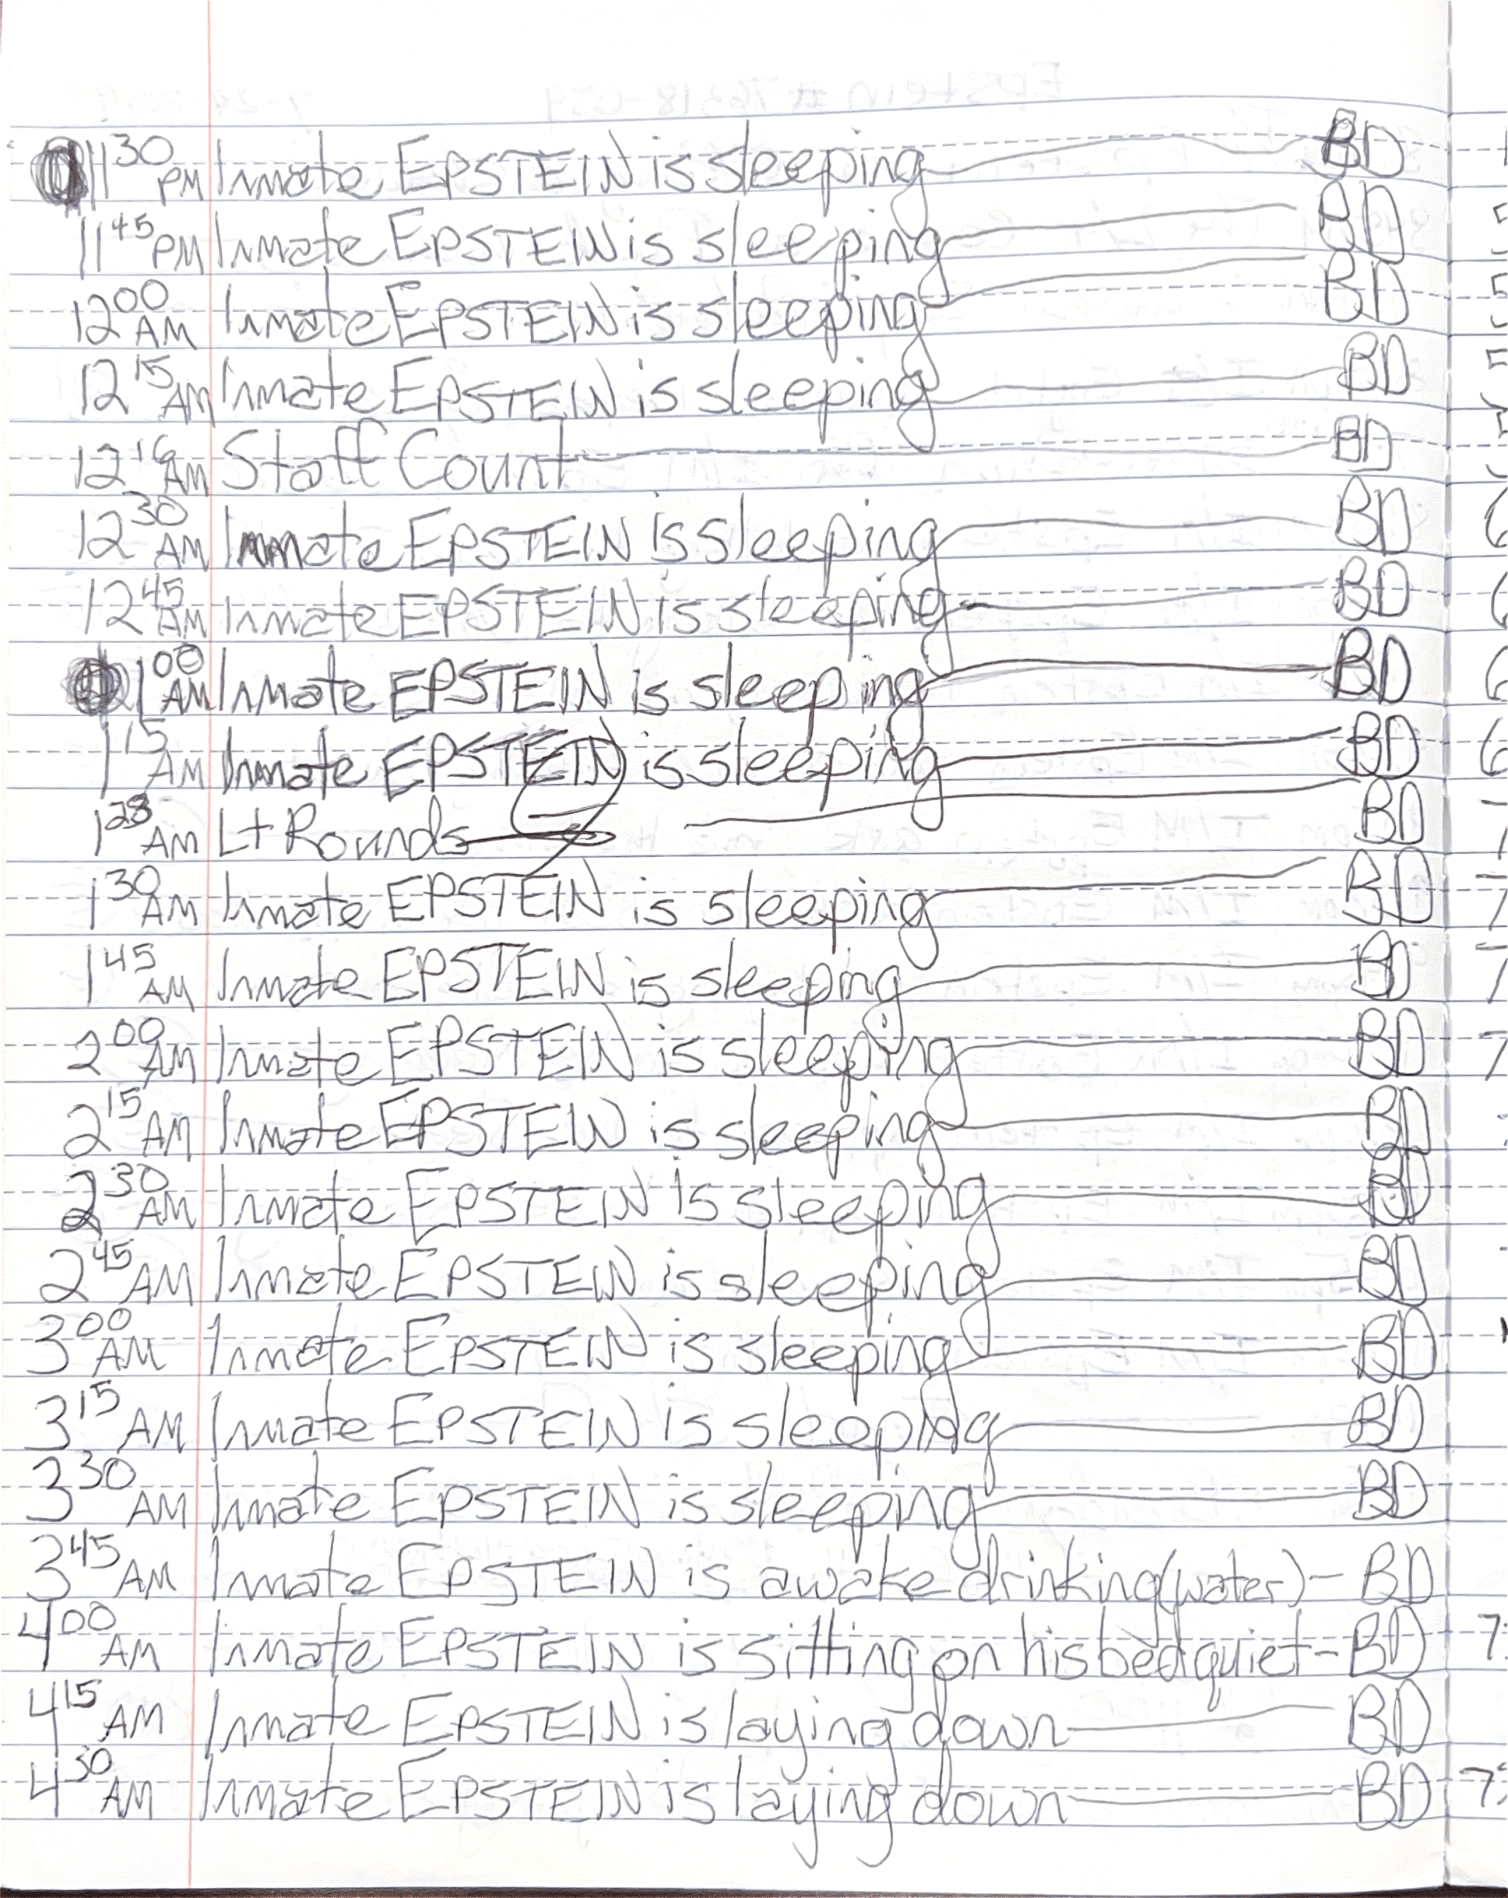 11 30 PM Inmate EPSTEIN is sleeping BD
11 45 PM Inmate EPSTEIN is sleeping BD
12 00 AM Inmate EPSTEIN is sleeping BD
12 15 AM Inmate EPSTEIN is sleeping BD
12 16 AM Staff Count BD
12 30 AM Inmate EPSTEIN is sleeping BD
12 45 AM Inmate EPSTEIN is sleeping BD
1 00 AM Inmate EPSTEIN is sleeping BD
1 15 AM Inmate EPSTEIN is sleeping BD
1 28 AM Lt Rounds BD
1 30 AM Inmate EPSTEIN is sleeping BD
1 45 AM Inmate EPSTEIN is sleeping BD
2 00 AM Inmate EPSTEIN is sleeping BD
2 15 AM Inmate EPSTEIN is sleeping BD
2 30 AM Inmate EPSTEIN is sleeping BD
2 45 AM Inmate EPSTEIN is sleeping BD
3 00 AM Inmate EPSTEIN is sleeping BD
3 15 AM Inmate EPSTEIN is sleeping BD
3 30 AM Inmate EPSTEIN is sleeping BD
3 45 AM Inmate EPSTEIN is awake drinking (water) - BD
4 00 AM Inmate EPSTEIN is sitting on his bed quiet - BD
4 15 AM Inmate EPSTEIN is laying down BD
4 30 AM Inmate EPSTEIN is laying down BD